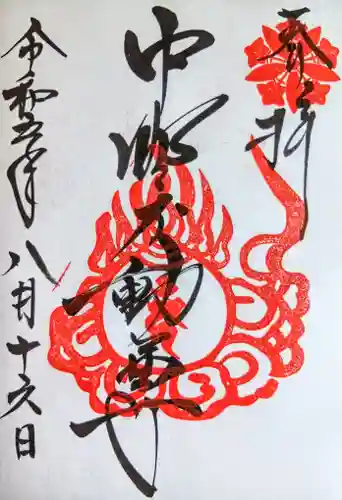 奉拝
中野不動尊
令和五年
八月十六日